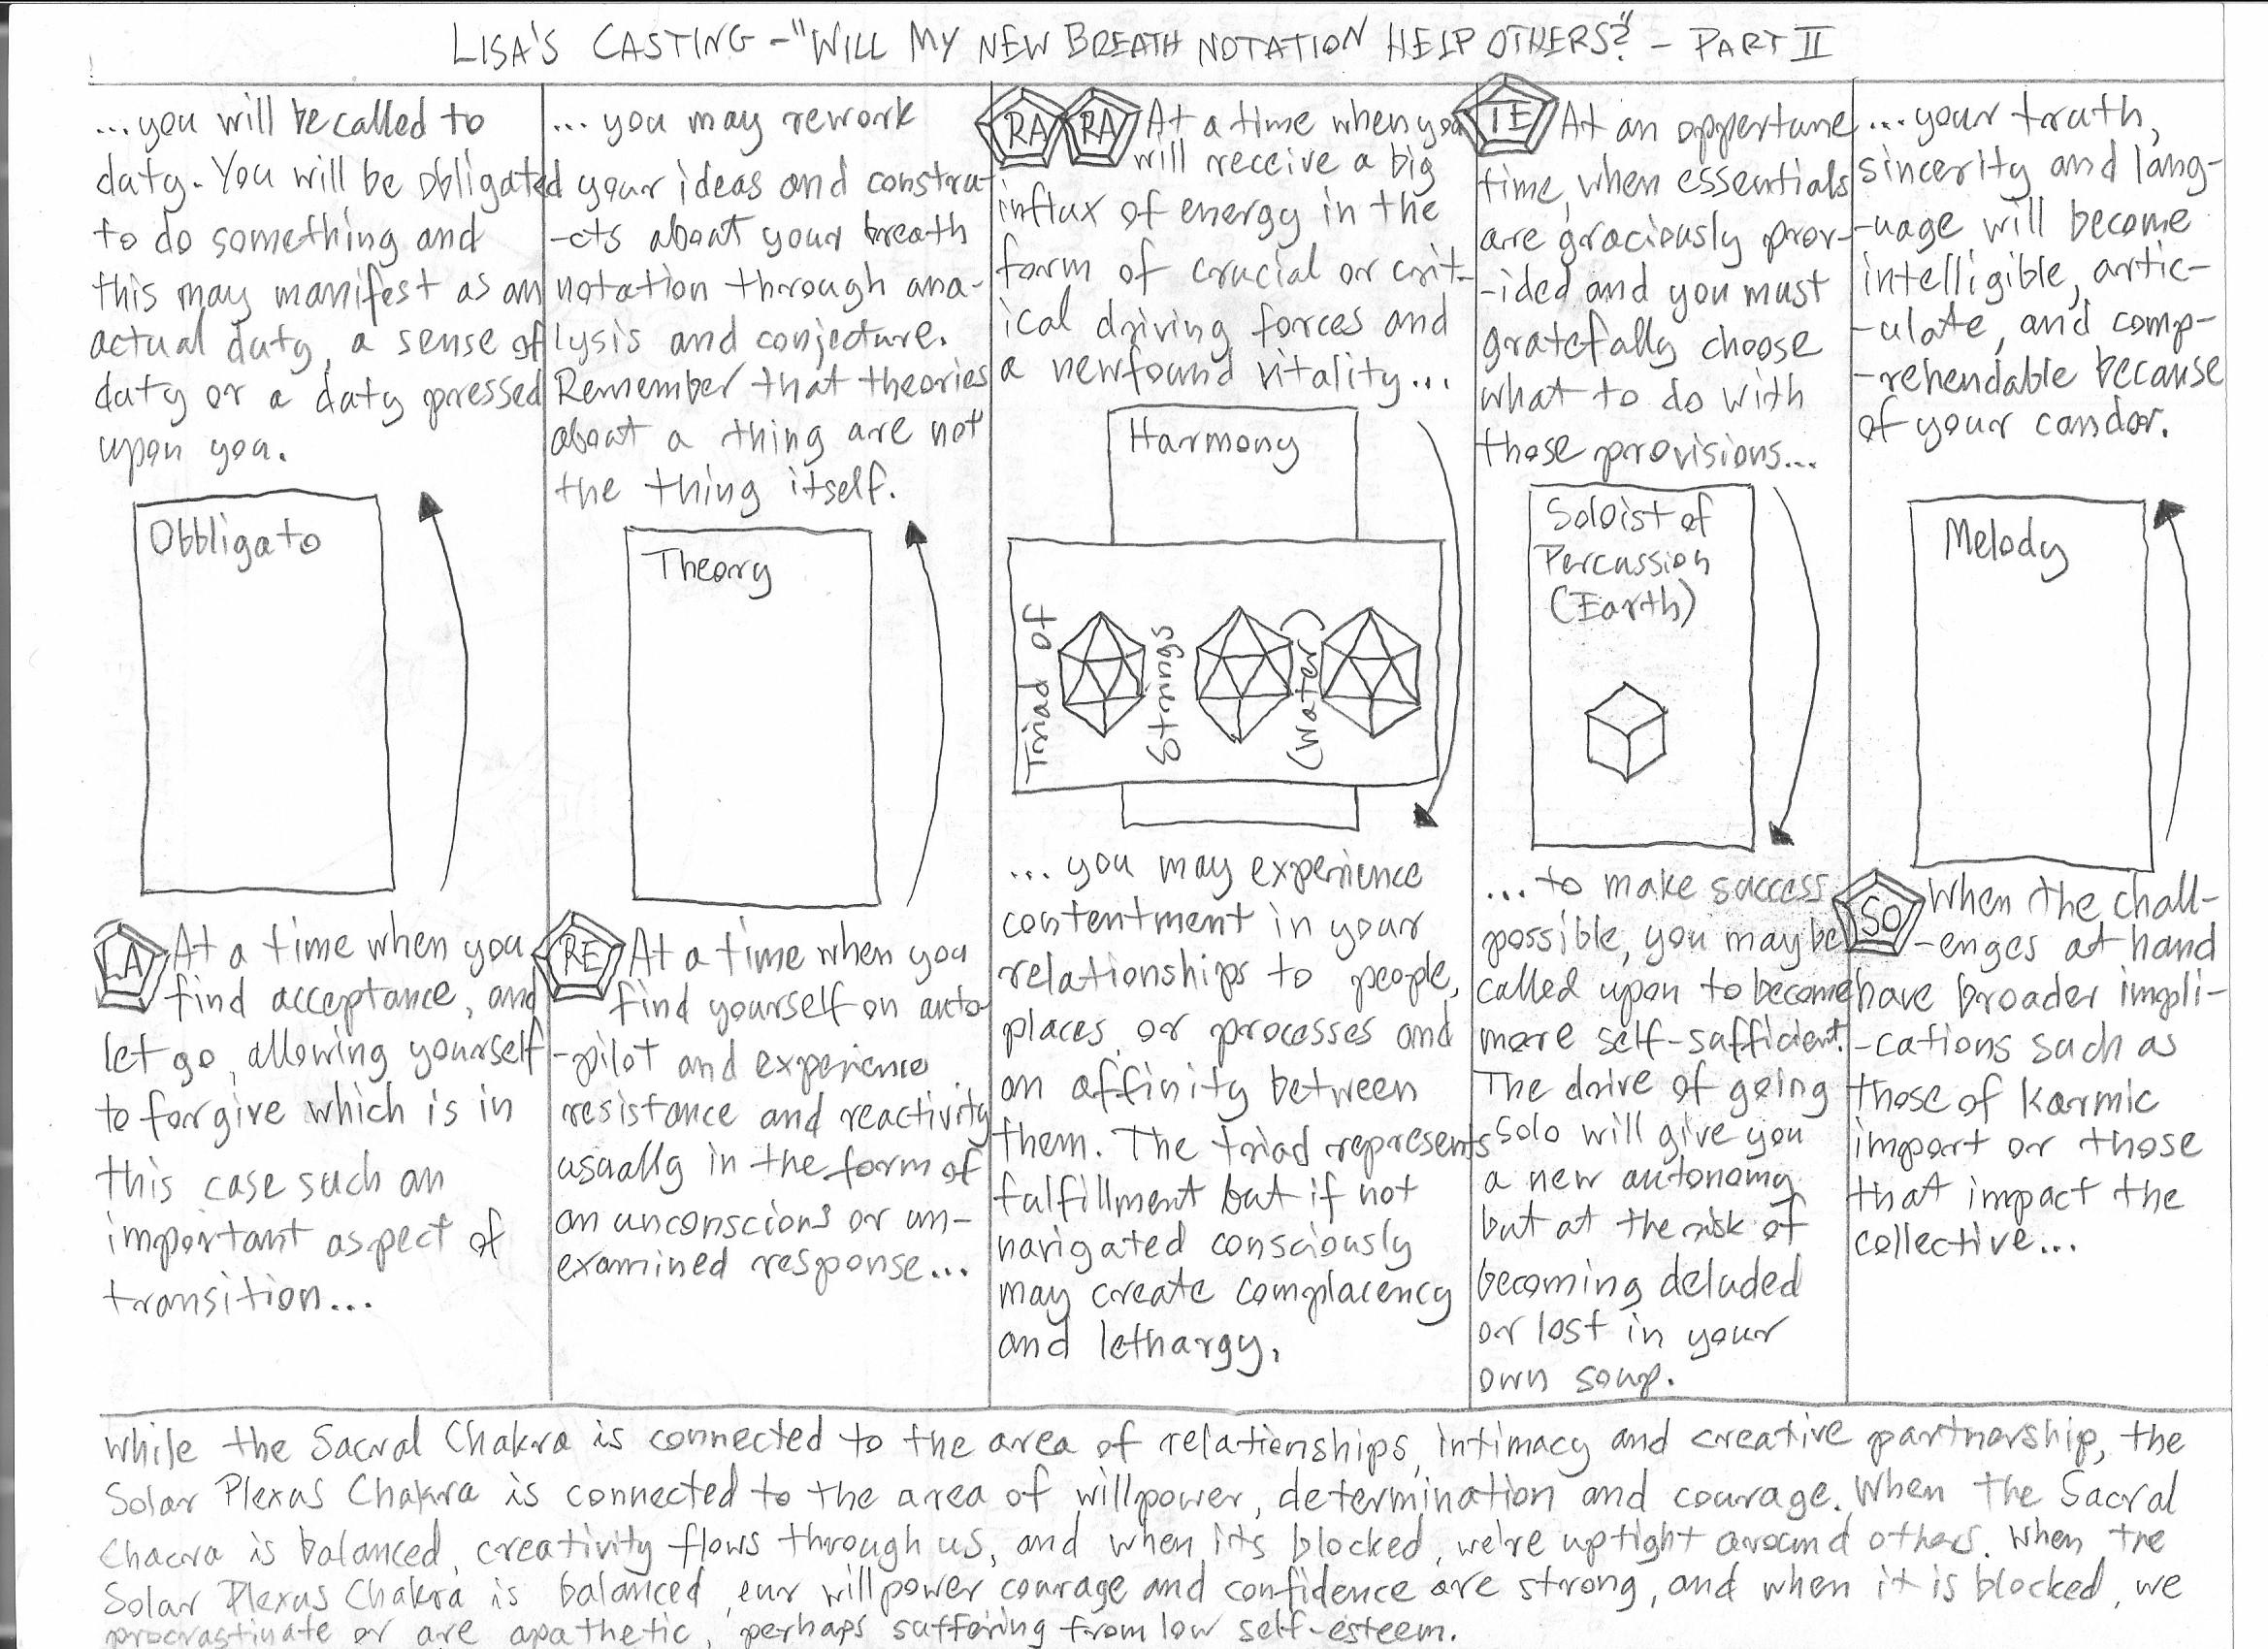 LISA'S CASTING - "WILL MY NEW BREATH NOTATION HELP OTHERS?" - PART II
...you will be called to
duty. You will be obligated
to do something and
this may manifest as an
actual duty, a sense of
duty or a duty pressed
upon you.
Obbligato
LA
At a time when you
find acceptance, and
let go, allowing yourself
to forgive which is in
this case such an
important aspect of
transition...
... you may rework
your ideas and constru-
-cts about your breath
notation through ana-
lysis and conjecture.
Remember that theories
about a thing are not
the thing itself.
Theory
RE
At a time when you
find yourself on auto-
-pilot and experience
resistance and reactivity
usually in the form of
an unconscious or un-
examined response...
RA RA
At a time when you
will receive a big
influx of energy in the
form of crucial or crit-
ical driving forces and
a newfound vitality...
Harmony
Triad of Strings (Water)
... you may experience
contentment in your
relationships to people,
places, or processes and
an affinity between
them. The triad represents
fulfillment but if not
navigated consciously
may create complacency
and lethargy.
TE
At an oppertune
time, when essentials
are graciously prov-
-ided and you must
gratefully choose
what to do with
those provisions...
Soloist of
Percussion
(Earth)
...to make success
possible, you may be
called upon to become
more self-sufficient.
The drive of going
solo will give you
a new autonomy
but at the risk of
becoming deluded
or lost in your
own soup.
...your truth,
sincerity and lang-
-uage will become
intelligible, artic-
-ulate, and comp-
-rehendable because
of your candor.
Melody
SO
When the chall-
-enges at hand
have broader impli-
-cations such as
those of karmic
import or those
that impact the
collective...
While the Sacral Chakra is connected to the area of relationships, intimacy and creative partnership, the
Solar Plexus Chakra is connected to the area of willpower, determination and courage. When the Sacral
Chacra is balanced, creativity flows through us, and when its blocked, we're uptight around others. When the
Solar Plexus Chakra is balanced, our willpower courage and confidence are strong, and when it is blocked, we
procrastinate or are apathetic, perhaps suffering from low self-esteem.